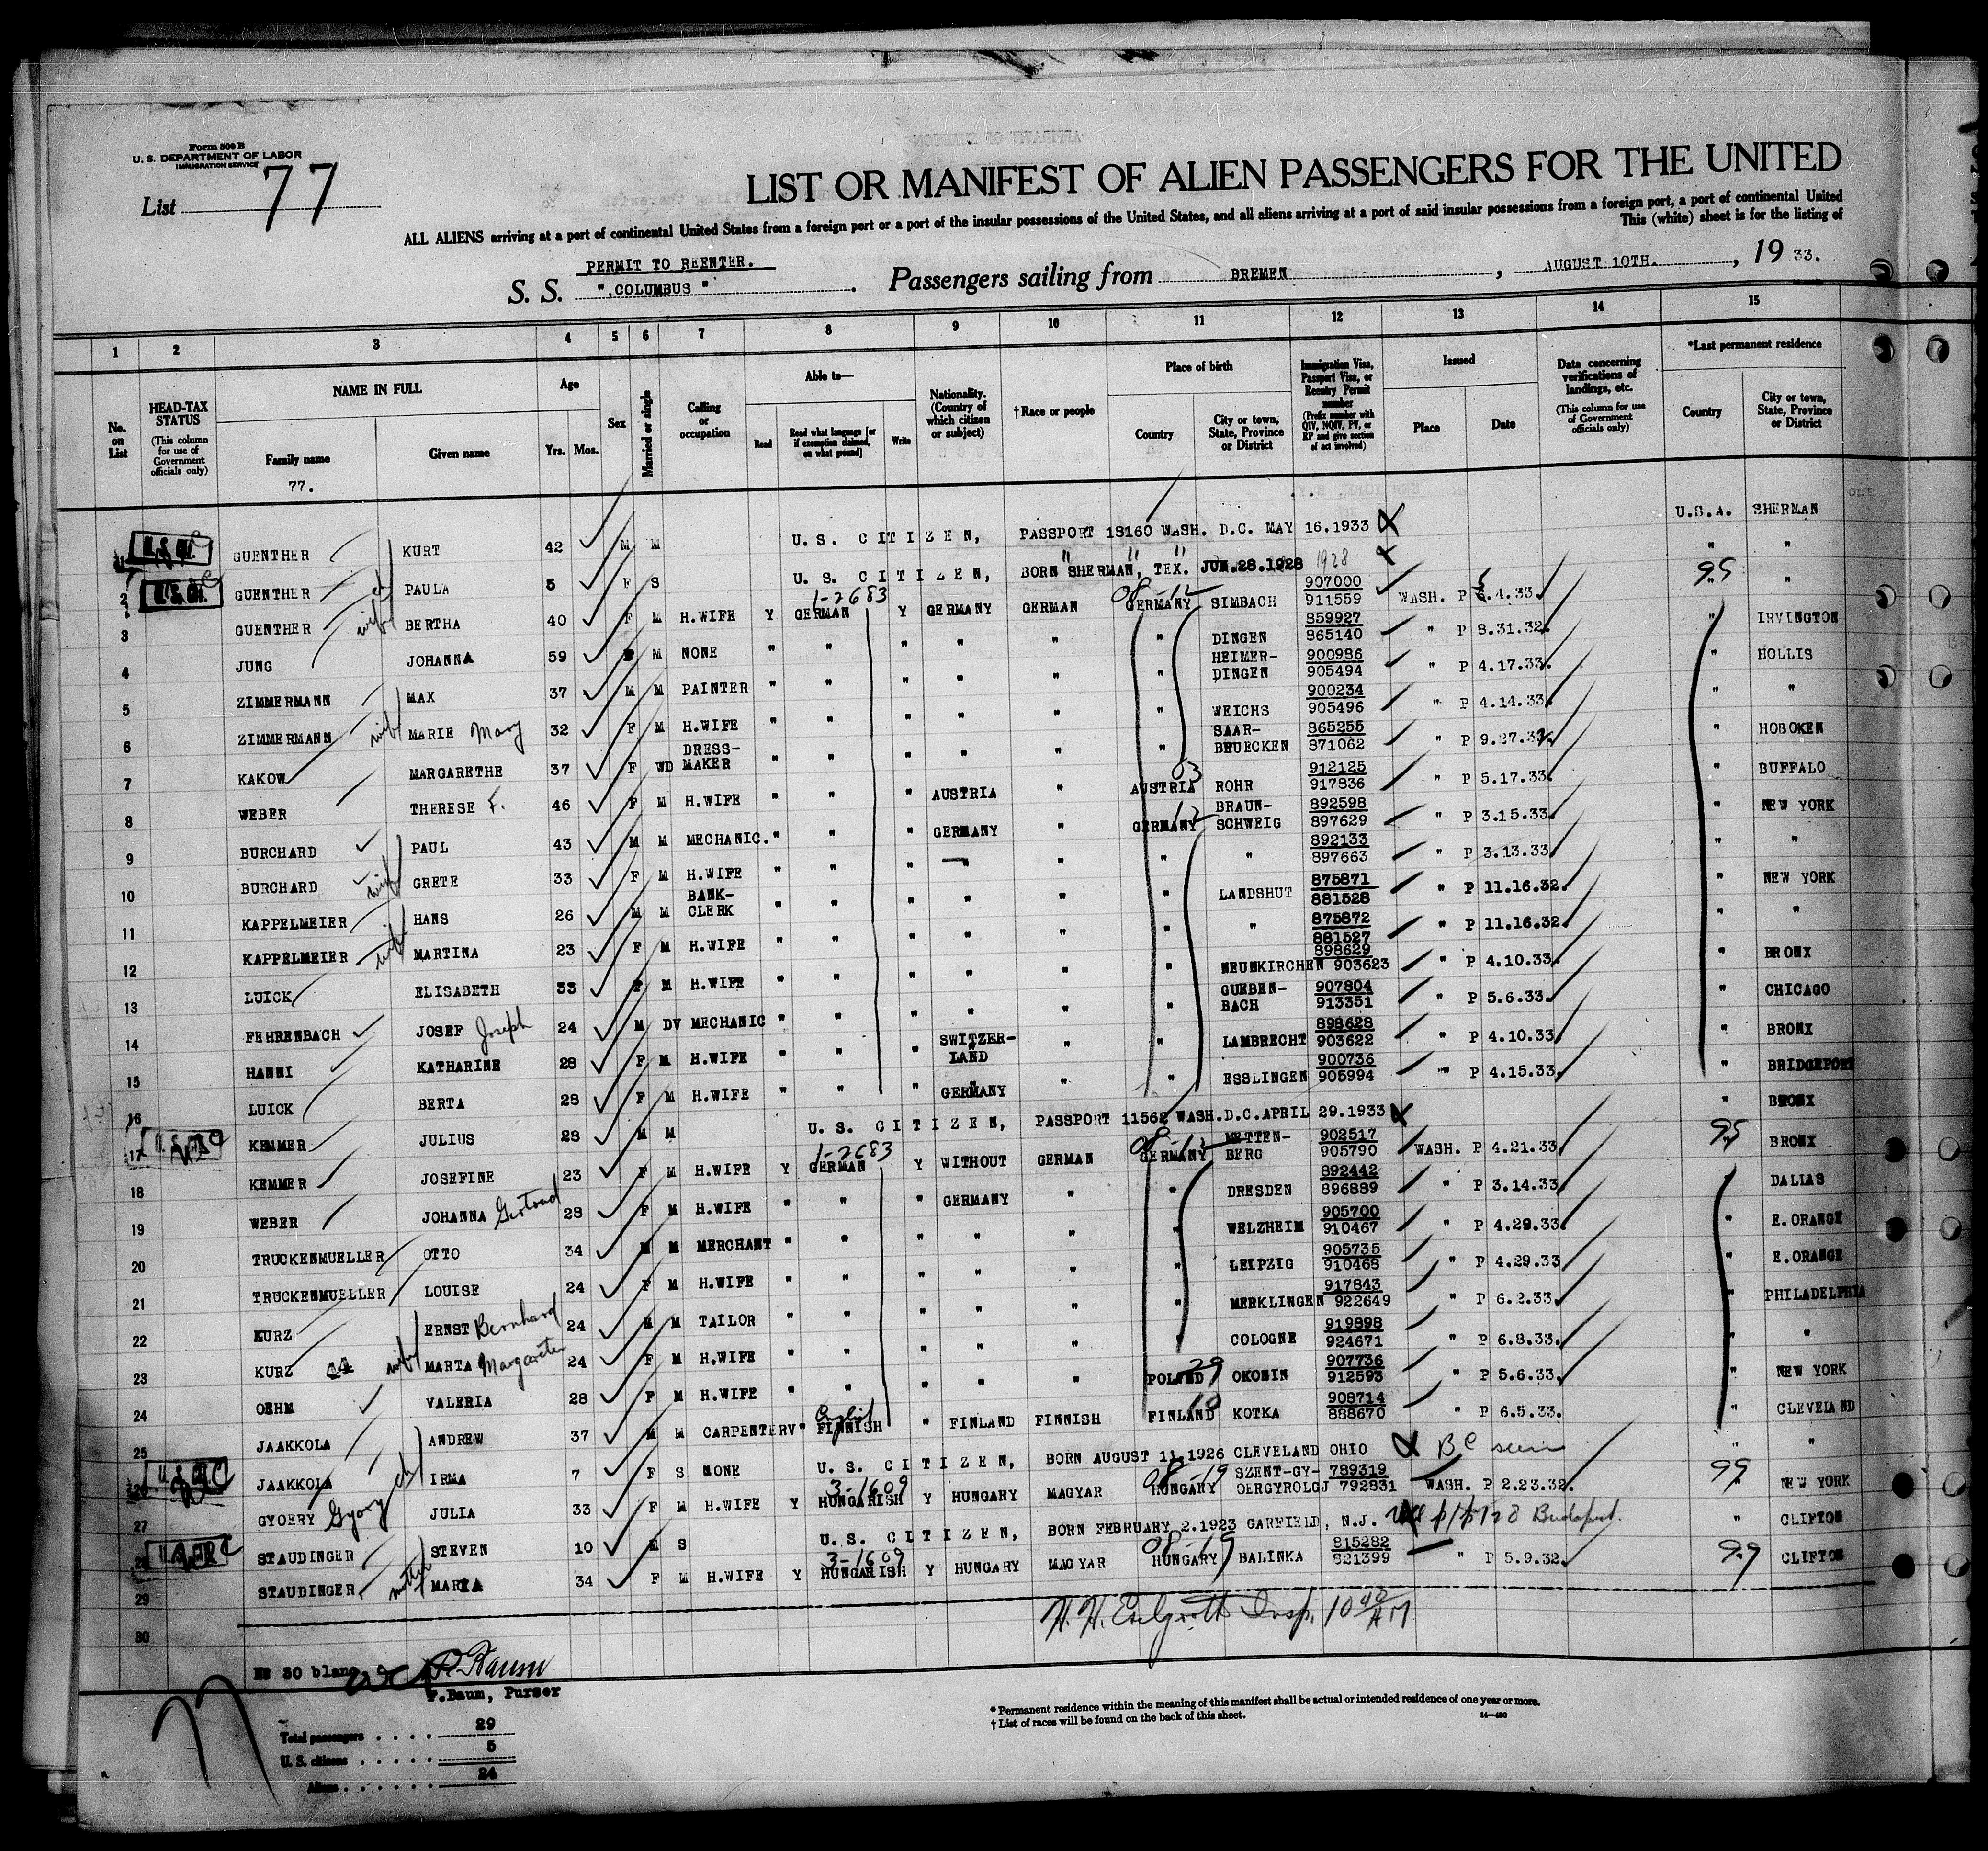 Form 500 B
U. S. DEPARTMENT OF LABOR
IMMIGRATION SERVICE
List 77
LIST OR MANIFEST OF ALIEN PASSENGERS FOR THE UNITED
ALL ALIENS arriving at a port of continental United States from a foreign port or a port of the insular possessions of the United States, and all aliens arriving at a port of said insular possessions from a foreign port, a port of continental United
This (white) sheet is for the listing of
PERMIT TO REENTER.
S. S. "COLUMBUS" . Passengers sailing from BREMEN , AUGUST 10TH. , 19 33.
1 2 3 4 5 6 7 8 9 10 11 12 13 14 15
No. on List
HEAD-TAX STATUS (This column for use of Government officials only)
NAME IN FULL
Family name
Given name
Age
Yrs. Mos.
Sex
Married or single
Calling or occupation
Able to—
Read
Read what language [or if exemption claimed, on what ground]
Write
Nationality. (Country of which citizen or subject)
†Race or people
Place of birth
Country
City or town, State, Province or District
Immigration Visa, Passport Visa, or Reentry Permit number (Prefix number with QIV, NQIV, PV, or RP and give section of act involved)
Issued
Place
Date
Data concerning verifications of landings, etc. (This column for use of Government officials only)
*Last permanent residence
Country
City or town, State, Province or District
77.
GUENTHER KURT 42 M M U.S. CITIZEN, PASSPORT 18160 WASH. D.C. MAY 16.1933 U.S.A. SHERMAN
2 GUENTHER ch PAULA 5 F S U.S. CITIZEN, BORN SHERMAN, TEX. JUN.28.1928 1928 " "
3 GUENTHER wife BERTHA 40 F M H.WIFE Y GERMAN 1-2683 Y GERMANY GERMAN GERMANY 08-12 SIMBACH 907000 911559 WASH. P 5.4.33 99 "
4 JUNG JOHANNA 59 M NONE " " " " " " DINGEN 859927 865140 " P 8.31.32. " IRVINGTON
5 ZIMMERMANN MAX 37 M M PAINTER " " " " " " HEIMER-DINGEN 900986 905494 " P 4.17.33. " HOLLIS
6 ZIMMERMANN wife MARIE Mary 32 F M H.WIFE " " " " " " WEICHS 900234 905496 " P 4.14.33. " "
7 KAKOW MARGARETHE 37 F WD DRESS-MAKER " " " " " " SAAR-BRUECKEN 865255 871062 " P 9.27.32. " HOBOKEN
8 WEBER THERESE F. 46 F M H.WIFE " " " AUSTRIA " AUSTRIA 03 ROHR 912125 917836 " P 5.17.33. " BUFFALO
9 BURCHARD PAUL 43 M M MECHANIC. " " " GERMANY " GERMANY 12 BRAUN-SCHWEIG 892598 897629 " P 3.15.33. " NEW YORK
10 BURCHARD wife GRETE 33 F M H.WIFE " " " " " " " 892133 897663 " P 3.13.33. " "
11 KAPPELMEIER HANS 26 M M BANK-CLERK " " " " " " LANDSHUT 875871 881528 " P 11.16.32. " NEW YORK
12 KAPPELMEIER wife MARTINA 23 F M H.WIFE " " " " " " " 875872 881527 " P 11.16.32. " "
13 LUICK ELISABETH 33 F M H.WIFE " " " " " " NEUNKIRCHEN 898629 903623 " P 4.10.33. " BRONX
14 FEHRENBACH JOSEF Joseph 24 M DV MECHANIC " " " " " " GUEBEN-BACH 907804 913351 " P 5.6.33. " CHICAGO
15 HANNI KATHARINE 28 F M H.WIFE " " " SWITZER-LAND " " LAMBRECHT 898628 903622 " P 4.10.33. " BRONX
16 LUICK BERTA 28 F M H.WIFE " " " GERMANY " " ESSLINGEN 900736 905994 " P 4.15.33. " BRIDGEPORT
17 KEMMER JULIUS 28 M M U.S. CITIZEN, PASSPORT 11562 WASH.D.C.APRIL 29.1933 " BRONX
18 KEMMER JOSEFINE 23 F M H.WIFE Y GERMAN 1-2683 Y WITHOUT GERMAN GERMANY 08-12 METTEN-BERG 902517 905790 WASH. P 4.21.33. 99 BRONX
19 WEBER JOHANNA Gertrud 28 F M H.WIFE " " " GERMANY " " DRESDEN 892442 896889 " P 3.14.33. " DALLAS
20 TRUCKENMUELLER OTTO 34 M M MERCHANT " " " " " " WELZHEIM 905700 910467 " P 4.29.33. " E.ORANGE
21 TRUCKENMUELLER LOUISE 24 F M H.WIFE " " " " " " LEIPZIG 905735 910468 " P 4.29.33. " E.ORANGE
22 KURZ ERNST Bernhard 24 M M TAILOR " " " " " " MERKLINGEN 917843 922649 " P 6.2.33. " PHILADELPHIA
23 KURZ wife MARTA Margarete 24 F M H.WIFE " " " " " " COLOGNE 919898 924671 " P 6.8.33. " "
24 OEHM VALERIA 28 F M H.WIFE " " " " " POLAND 29 OKONIN 907736 912593 " P 5.6.33. " NEW YORK
25 JAAKKOLA ANDREW 37 M M CARPENTER " FINNISH English " FINLAND FINNISH FINLAND 10 KOTKA 908714 888670 " P 6.5.33. " CLEVELAND
26 JAAKKOLA ch IRMA 7 F S NONE U.S. CITIZEN, BORN AUGUST 11,1926 CLEVELAND OHIO BC seen " "
27 GYOERY Gyory JULIA 33 F M H.WIFE Y HUNGARISH 3-1609 Y HUNGARY MAGYAR HUNGARY 08-19 SZENT-GY-OERGYROLGJ 789319 792831 WASH. P 2.23.32. 99 NEW YORK
28 STAUDINGER STEVEN 10 M S U.S. CITIZEN, BORN FEBRUARY 2.1923 GARFIELD, N.J. Budapest. " CLIFTON
29 STAUDINGER mother MARIA 34 F M H.WIFE Y HUNGARISH 3-1609 Y HUNGARY MAGYAR HUNGARY 08-19 BALINKA 815282 821399 " P 5.9.32. 99 CLIFTON
30
Insp. 10 40 AM
No 30 blanc
P. Baum
P.Baum, Purser
77
Total passengers . . . . 29
U. S. citizens . . . . . 5
Aliens . . . . . . 24
* Permanent residence within the meaning of this manifest shall be actual or intended residence of one year or more.
† List of races will be found on the back of this sheet.
14—430